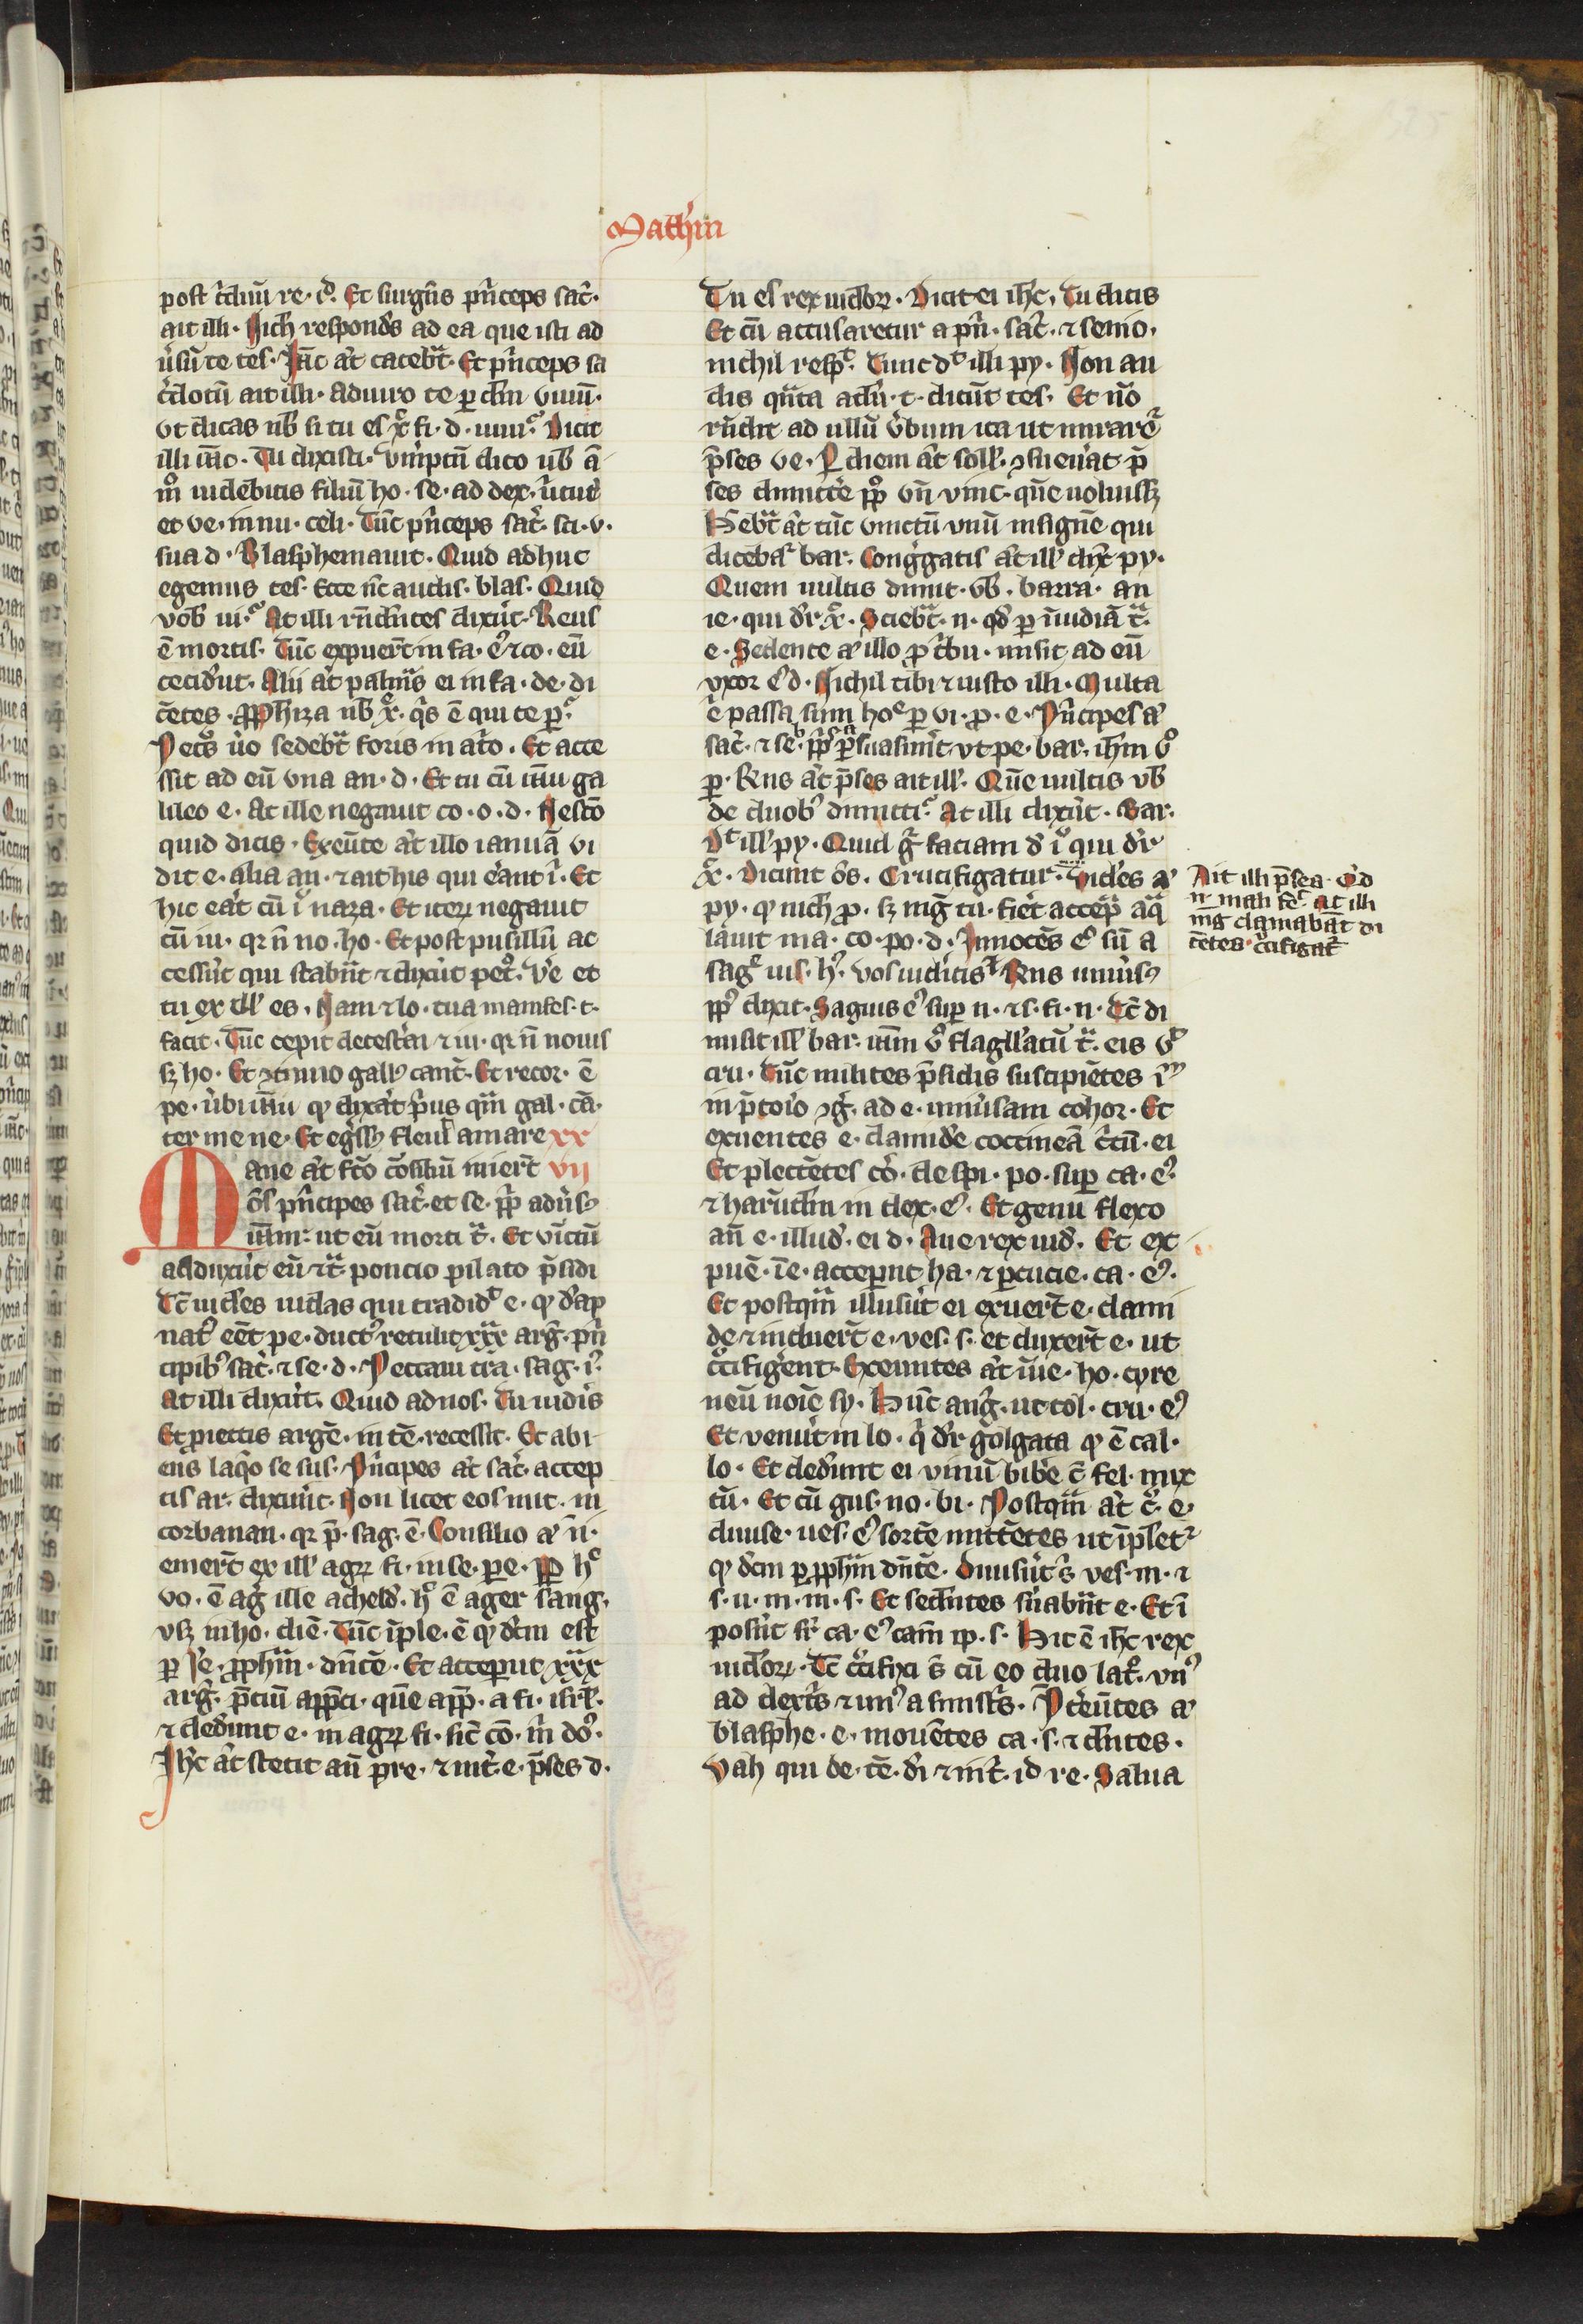 Mathei
post t̄duū re· id̾· Et surgēs pͥnceps sac̾·
ait illi· Nich̾ respondēs ad ea que isti ad
ūsū te tes· Ih̄c āt taceb̄t· Et pͥnceps sa
c̾dotū ait illi· adiuro te ꝑ dm̄ viuū·
vt dicas nob̄ si tu es xp̄c fi· d· uiui· Dicit
illi ih̄c· Tu dixisti· Vmptū dico uob̄ ā
mō uidebitis filiū ho· se· ad dex· ūtut̾
et ve· in nu· celi· Tūc pͥnceps sac̾· sci· v·
sua d· Blasphemauit· Quid adhuc
egemus tes· Ecce nūc audis· blas· Quid
vob̄ ui· At illi rn̄dētes dixūt· Reus
ē mortis· Tūc expuerūt in fa· eꝰ ⁊ co· eū
cecidūt· Alii āt palmas ei in fa· de· di
cētes· Pphiza nob̄ xp̄e· qͥs ē qui te ꝑ·
Petrꝰ ūo sedeb̄t foris in atͥo· Et acce
ssit ad eū vna an· d· Et tu cū ih̄u ga
lileo e· At ille negauit co· o· d· Nescio
quid dicis· Exeūte āt illo ianuā vi
dit e· alia an· ⁊ ait his qui erāt ī· Et
hic erāt cū ī naza· Et iterꝝ negauit
cū iu· qꝛ n̄ no· ho· Et post pusillū ac
cessūt qui stabūt ⁊ dixūt petͦ· Ve et
tu ex ill̾ es· Nam ⁊ lo· tua manifes· t·
facit· Tūc cepit detestari ⁊ iu· qꝛ n̄ nouis
sꝫ ho· Et ꝯtinuo gallꝰ cant̄· Et recor· ē
pe· ūbi ih̄u qꝫ dix̾at pͥus qm̄ gal· cā·
ter me ne· Et egss̾ fleuit amare xx
Mane āt fc̄o cōsiliū inierūt vii
ōs pͥncipes sac̾· et se· pp̄ adūs̾
ih̄m· ut eū morti t̄· Et vīctū
adduxūt eū ⁊ t̄· poncio pilato p̄sidi
Tc̄ uides iudas qui tradidͭ e· qꝫ dāp
natꝰ eēt pe· ductꝰ retulit xxx arḡ· pͥn
cipibꝰ sac̾· ⁊ se· d· Peccaui tra· sag· iꝰ
At illi dixūt· Quid ad nos· Tu uidēis
Et ꝓiectis argē· in tē· recessit· Et abi
ens laqͦo se sus· Pͥncipes āt sac̾· accep
tis ar· dixūt· Non licet eos mit· in
corbanan· qꝛ p̄· sag· ē· Consilio aͭ in·
emerūt ex ill̾ agꝝ fi· in se· pe· Pp̄ hͦ
vo· ē ag̾ ille acheld̾· hͦ ē ager sang·
vsꝫ in ho· diē· Tūc īple· ē qꝫ dc̄m est
ꝑ ie· pphm̄· dn̄tē· Et acceperūt xxx
arḡ· p̄ciū app̄ci· quē app̄· a fi· isrl̾·
⁊ dedūt e· in agꝝ fi· sic̄ cō· m̄ doꝰ·
Ih̄c āt stetit an̄ p̄re· ⁊ int̾· e· p̄ses d·
Tu es rex iudeoꝝ· Dicit ei ih̄c· Tu dicis
Et cū accusaretur a pͥn· sac̾· ⁊ senio·
nichil respͭ· Tunc dͭ illi py· Non au
dis qn̄ta adū· t· dicūt tes· Et nō
rn̄dit ad ullū ūbum ita ut mirarēͬ
p̄ses ve· P diem āt soll̾· ꝯsueūat p̄
ses dimitt̾e pp̄o vn̄ vinc· quē uoluissꝫ
Hēb̄t āt tūc vinctū vnū insignē qui
dicebaͬ bar· Congͣgatis āt ill̾ dix̾ py·
Quem uultis dimit· vob̄· barra· an
ie· qui dr̄ xp̄c· Scieb̄t· n· qd̾ ꝑ īuidiā t̄·
e· Sedente aͭ illo ꝓ t̾bu· misit ad eū
vxor eꝰ d· Nichil tibi ⁊ iusto illi· Multa
ē passa sum hoᵉ ꝑ vi· ꝓ· e· Pͥncipes aͭ
sac̾· ⁊ se· pp̄s ꝑsuasūt vt pe· bar· ih̄m v̾o
ꝑ· Rn̄s āt p̄ses ait ill̾· Quē uultis vob̄
de duobꝰ dimitti· At illi dixūt· Bar·
Dͭ ill̾ py· Quid gͥ faciam d̾ iͧ qui dr̄
xp̄c· Dicunt ōs· Crucifigatur· Uidēs aͭ
py· qꝫ nich̾ ꝓ· sꝫ mḡ tu· fiēt accep̄ aqͣ
lauit ma· co· po· d· Innocēs eͦ sū a
sagͤ ius· hꝰ· vos uidētis· Rn̄s uniūs̾
pp̄s dixit· Saguis eꝰ sup n· ⁊ s· fi· n· Tc̄ di
misit ill̾ bar· ih̄m v̾o flagll̾atū t̄· eis vͭ
cru· Tūc milites p̄sidis suscipiētes iᵐ
in p̄toio ꝯg̾· ad e· uniūsam cohor· Et
exuentes e· clamidē coccineā c̾cū· ei
Et plectētes cō· de spi· po· sup ca· eꝰ
⁊ harūdin̄ in dex· eꝰ· Et genu flexo
an̄ e· illud̾· ei d· Aue rex iud̾· Et ex
puē· īe· acceperūt ha· ⁊ ꝑcucie· ca· eꝰ·
Et postqm̄ illusūt ei exuerūt e· clami
de ⁊ induerūt e· ves· s· et duxerūt e· ut
c̾cifig̾ent· Exeuntes āt īue· ho· cyre
neū noīe sy· Hūc ang̾· ut tol· cru· eꝰ
Et venūt in lo· qͥ dr̄ golgata qꝫ ē cal·
lo· Et dedūt ei vinū bibe c̄ fel· mix
tū· Et cū gus· no· bi· Postqm̄ āt c̾· e·
diuise· ues· eꝰ sortē mittētes ut īpletͬ
qꝫ dc̄m ꝑ pphm̄ dn̄tē· Diuisūt s̄ ves· m· ⁊
s· u· m· m· s· Et sedn̄tes s̾uabūt e· Et ī
posūt sr̄ ca· eꝰ cam̄ ip· s· Hic ē ih̄c rex
iudeoꝝ· Tc̄ c̾cifixi s̄ cū eo duo latͦ· vnꝰ
ad dextͥs ⁊ unꝰ a sinistͥs· P̄t̾eūtes aͭ
blasphe· e· mouētes ca· s· ⁊ dn̄tes·
Vah qui de· tē· di ⁊ in t̾· id re· Salua
Ait illi p̄ses· Qͥd
n̄ mali fecͭ· at illi
mḡ clamabāt di
cētes c̾cifigatͬ